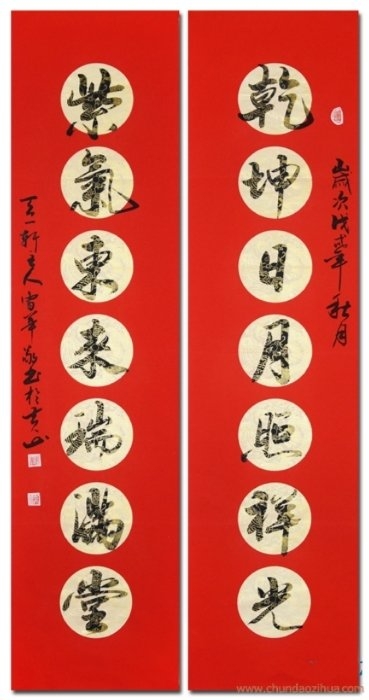 乾坤日月照祥光
歲次戊戌年秋月
紫氣東来瑞滿堂
天一軒主人
www.chundaozihua.com